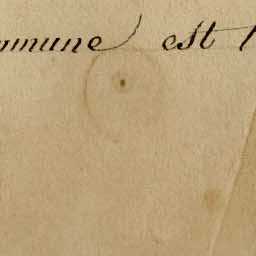 mmune est